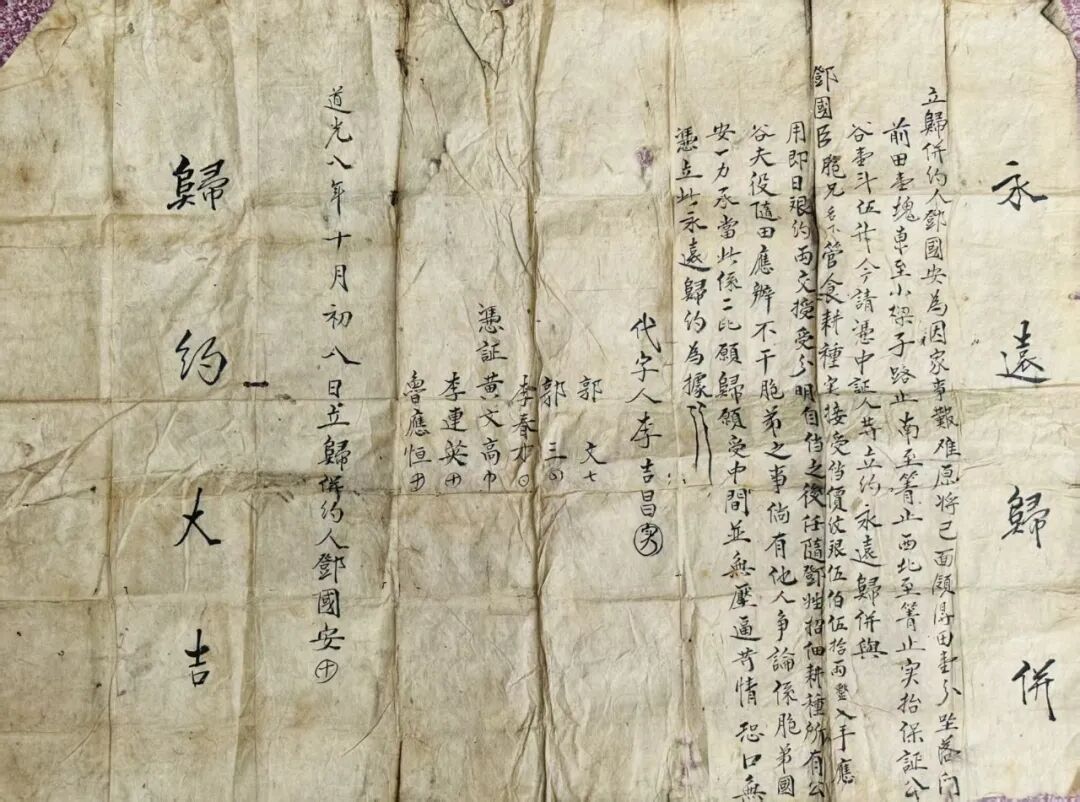 永遠歸併
立歸併約人鄧國安為因家事艱难愿将己面頒得田壹分坐落门
前田壹塊東至小樑子路止南至箐止西北至箐止实抬保証公
谷壹斗伍升今請憑中証人等立約永遠歸併與
鄧國臣胞兄名下管食耕種实接受僞價汶艰伍伯伍拾両整入手應
用即日艰約両交授受分明自僞之後任隨鄧姓招佃耕種所有公
谷夫役隨田應辦不干胞弟之事倘有他人争論係胞弟國
安一力承當此係二比願歸願受中間並無壓逼苛情恐口無
憑立此永遠歸約為據
代字人李吉昌
郭文七
郭三
李春
憑証黄文高
李連英十
魯應恒十
道光八年十月初八日立歸併約人鄧國安十
歸約大吉